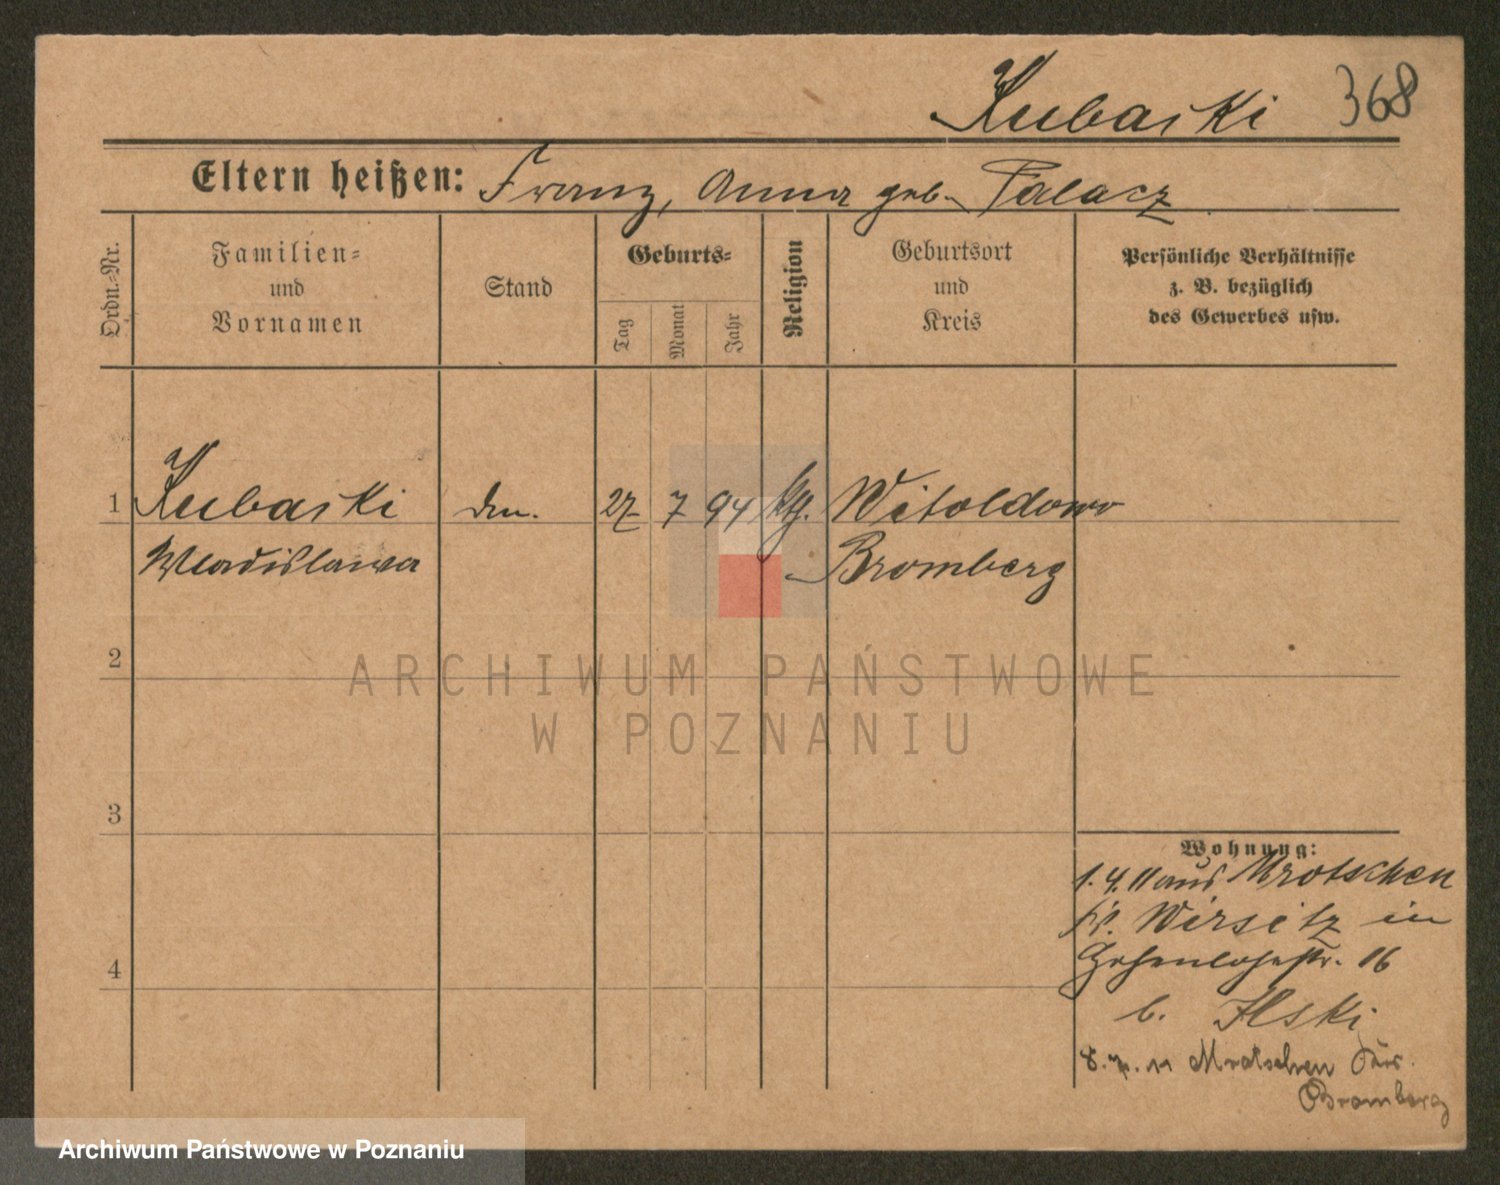 Kubaski 368
Eltern heißen: Franz, Anna geb. Palacz
Ordn.-Nr.
Familien-
und
Vornamen
Stand
Geburts-
Tag
Monat
Jahr
Religion
Geburtsort
und
Kreis
Persönliche Verhältnisse
z. B. bezüglich
des Gewerbes usw.
1 Kubaski 27 7 94 Witoldowo
Wladislawa Bromberg
2
3
4
Wohnung:
1.4.11 aus Mrotschen
Wirsitz in
Hohenlohestr. 16
b. Ilski
8.7.11 Mrotschen
Bromberg
ARCHIWUM PAŃSTWOWE
W POZNANIU
Archiwum Państwowe w Poznaniu